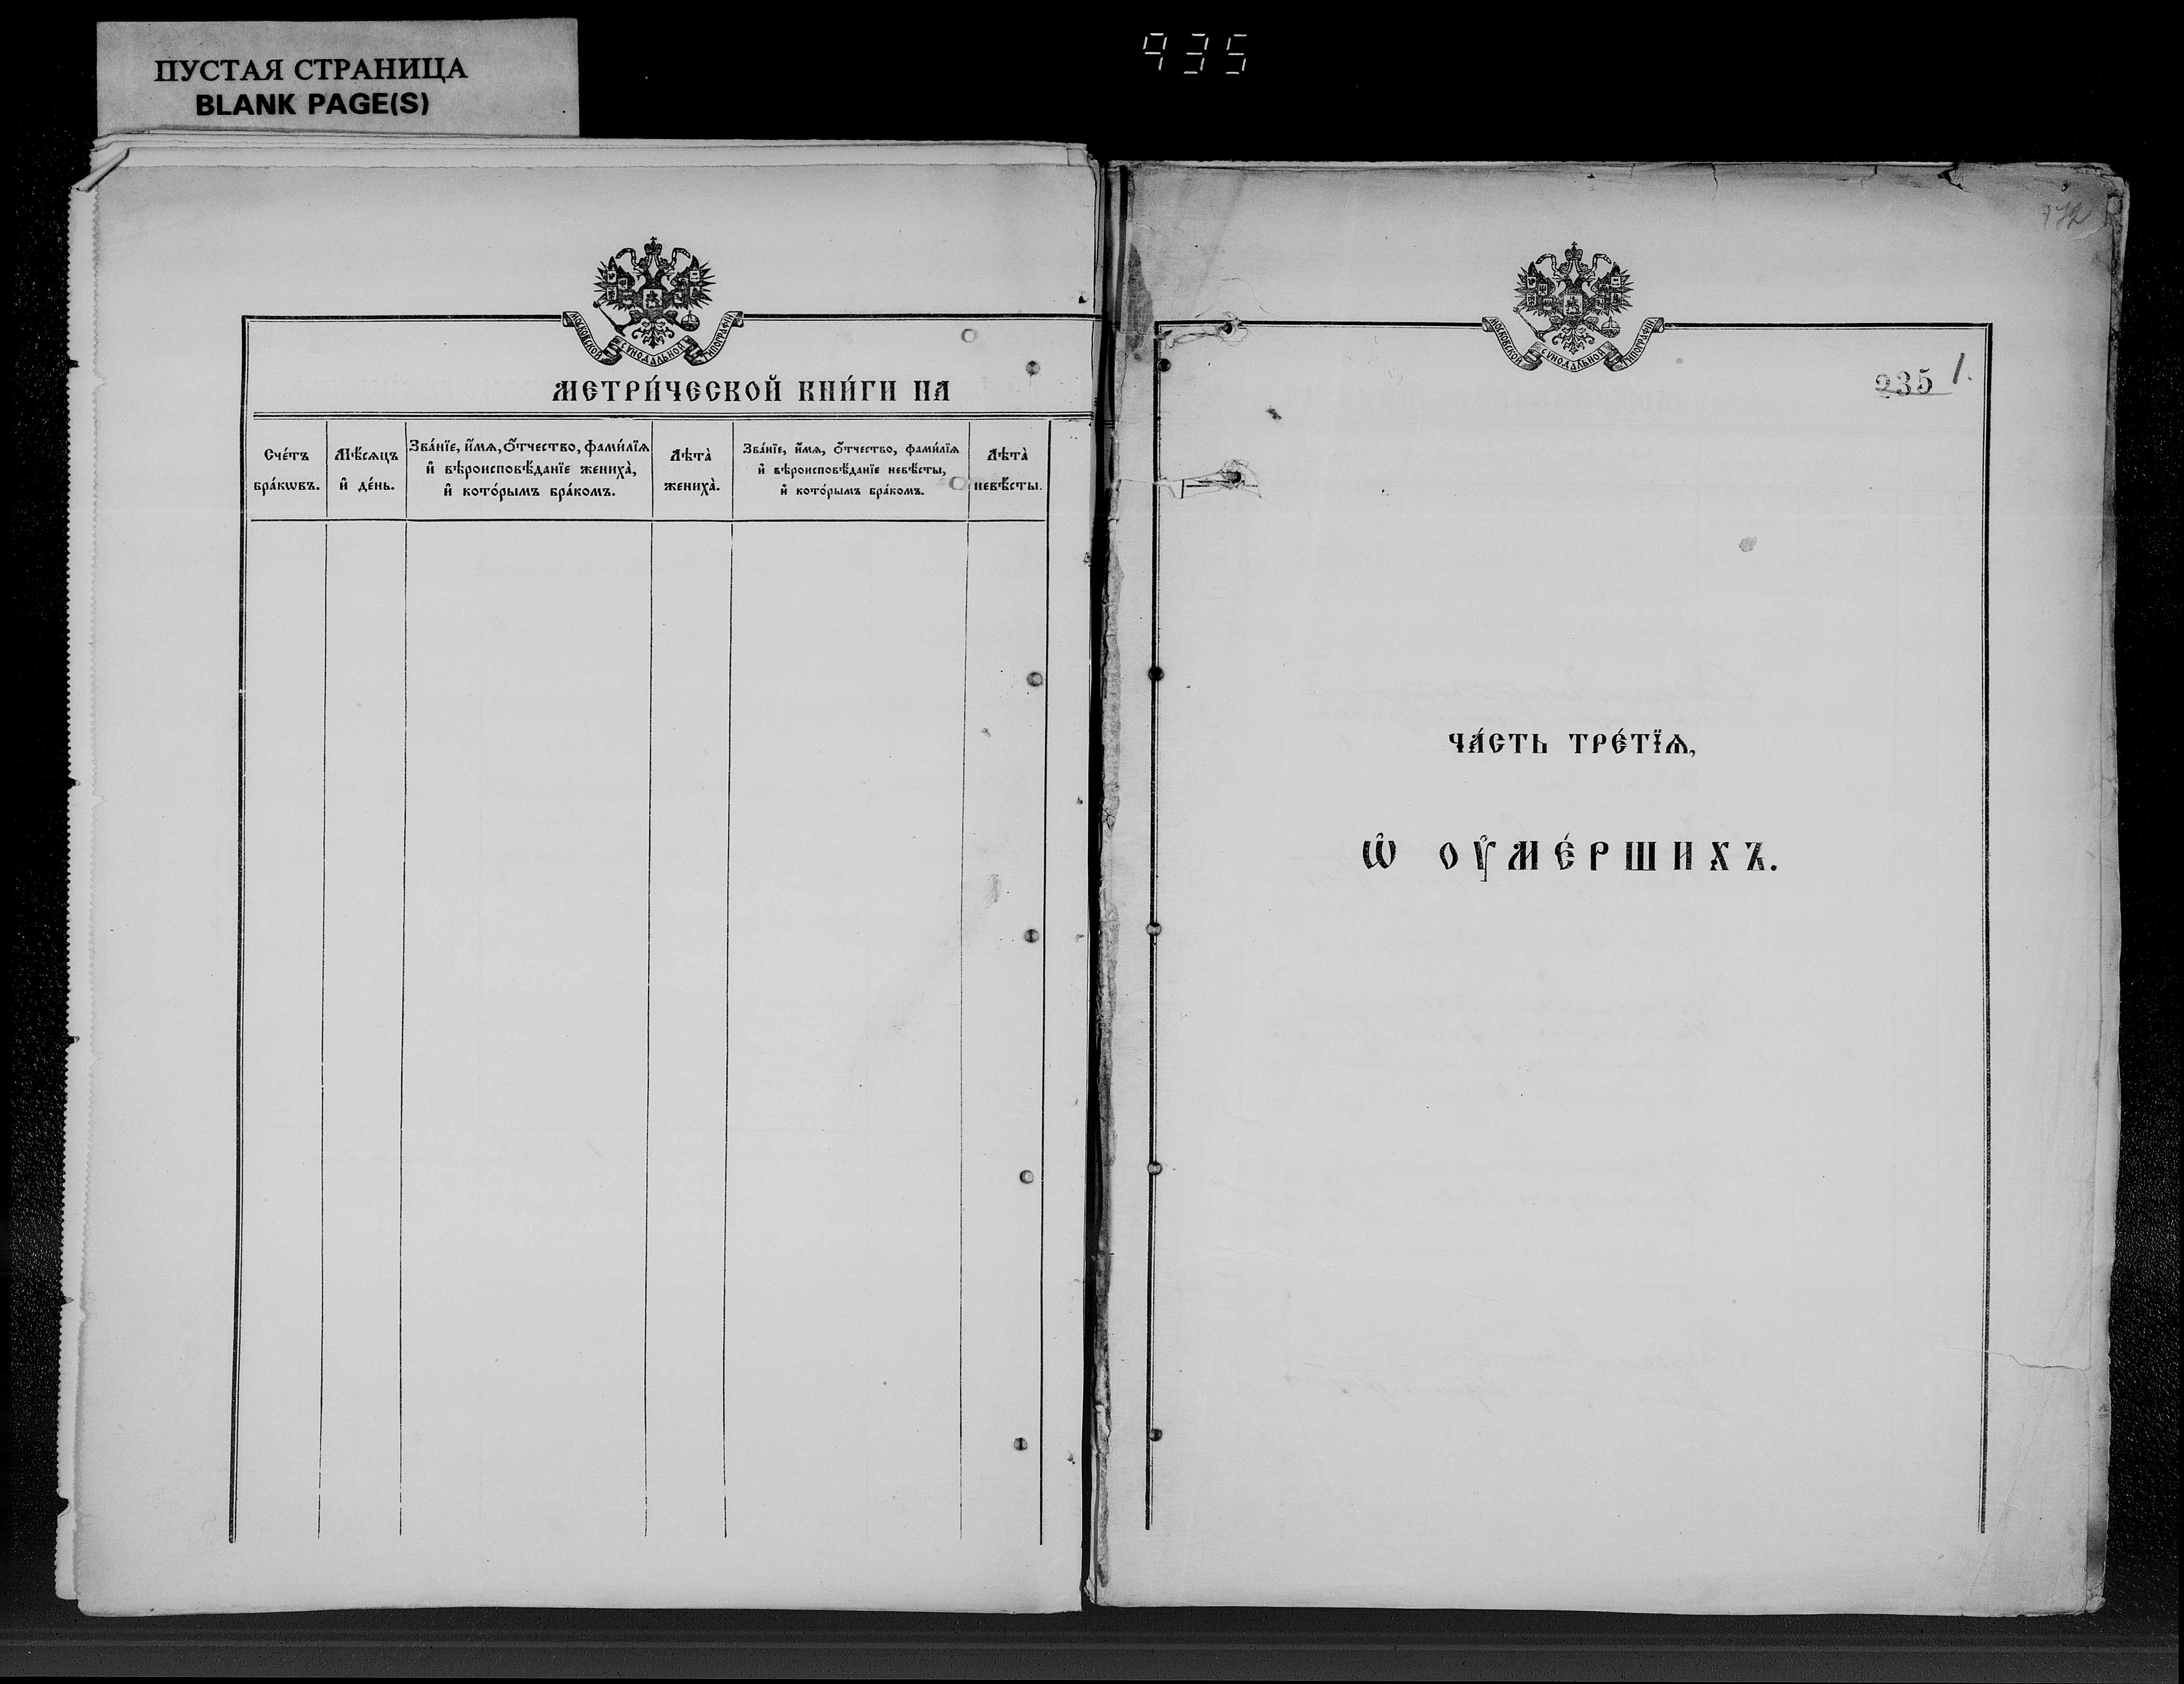 ПУСТАЯ СТРАНИЦА
BLANK PAGE(S)
935
МОСКОВСКОЙ СѴНОДАЛЬНОЙ ТИПОГРАФІИ
МЕТРИ́ЧЕСКОЙ КНИ́ГИ НА
Сче́тъ бра́кѡвъ.
Мѣ́сѧцъ и҆ де́нь.
Зва́нїе, и҆́мѧ, ѻ҆́тчество, фами́лїѧ
и҆ вѣроисповѣ́данїе жениха̀,
и҆ кото́рымъ бра́комъ.
Лѣта̀ жениха̀.
Зва́нїе, и҆́мѧ, ѻ҆́тчество, фами́лїѧ
и҆ вѣроисповѣ́данїе невѣ́сты,
и҆ кото́рымъ бра́комъ.
Лѣта̀ невѣ́сты.
МОСКОВСКОЙ СѴНОДАЛЬНОЙ ТИПОГРАФІИ
235 1.
ЧА́СТЬ ТРЕ́ТЇѦ,
Ѡ҆ ОУ҆МЕ́РШИХЪ.